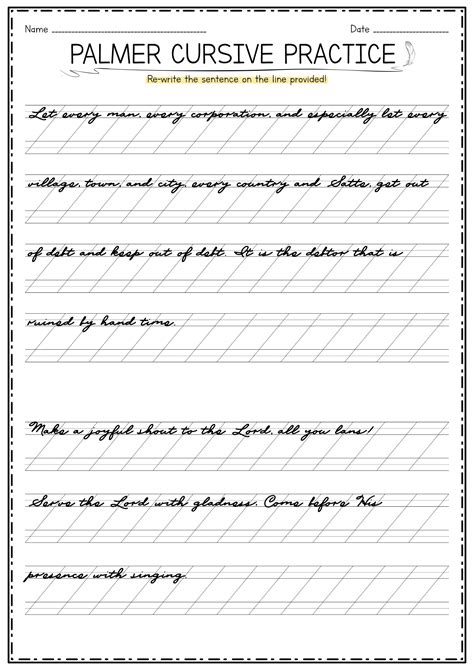 Name Date
PALMER CURSIVE PRACTICE
Re-write the sentence on the line provided!
Let every man, every corporation, and especially let every
village, town, and city, every country and Satte, get out
of debt and keep out of debt. It is the debtor that is
ruined by hand time.
Make a joyful shout to the Lord, all you lans!
Serve the Lord with gladness. Come before His
presence with singing.